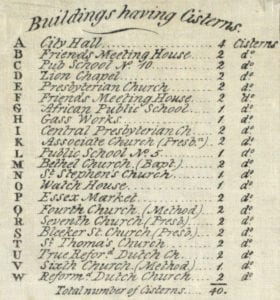 Buildings having Cisterns.
A City Hall 4 Cisterns
B Friends Meeting House 2 do
C Pub School No 10 2 do
D Lion Chapel 2 do
E Presbyterian Church 2 do
F Friends Meeting House 2 do
G African Public School 2 do
H Gass Works 1 do
I Central Presbyterian Ch. 2 do
K Associate Church (Presbn.) 2 do
L Public School No 5 1 do
M Bethel Church (Bapt.) 2 do
N St Stephen's Church 2 do
O Watch House 1 do
P Essex Market 2 do
Q Fourth Church (Method.) 2 do
R Seventh Church (Presb.) 1 do
S Bleeker St. Church (Presb.) 2 do
T St Thomas's Church 2 do
U True Reformd Dutch Ch. 2 do
V Sixth Church (Method.) 1 do
W Reformd Dutch Church 2 do
Total number of Cisterns 40.